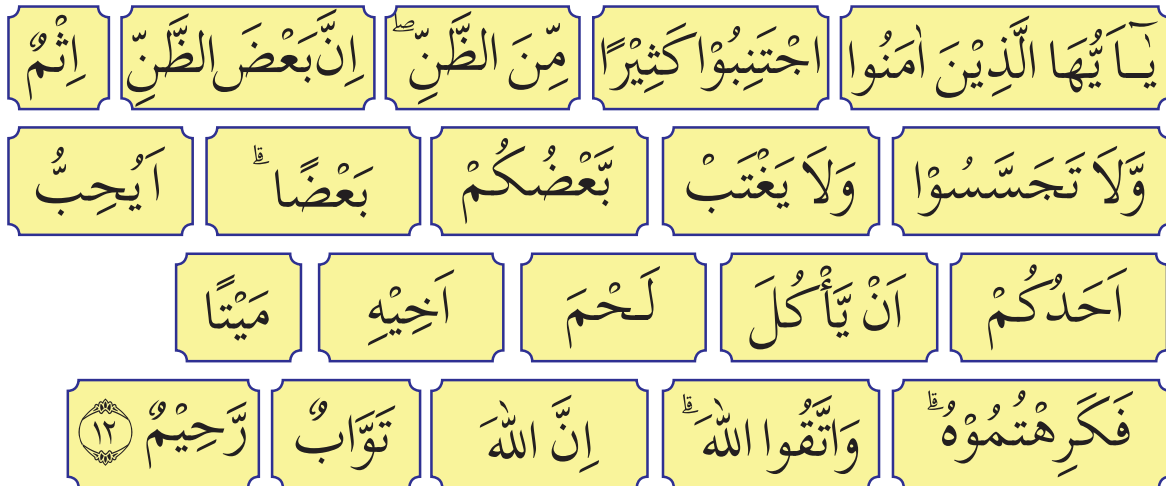 يٰٓـاَيُّهَا الَّذِيْنَ اٰمَنُوا اجْتَنِبُوْا كَثِيْرًا مِّنَ الظَّنِّ ۖ اِنَّ بَعْضَ الظَّنِّ اِثْمٌ
وَّلَا تَجَسَّسُوْا وَلَا يَغْتَبْ بَّعْضُكُمْ بَعْضًا ۗ اَيُحِبُّ
اَحَدُكُمْ اَنْ يَّأْكُلَ لَـحْمَ اَخِيْهِ مَيْتًا
فَكَرِهْتُمُوْهُ ۗ وَاتَّقُوا اللّٰهَ ۗ اِنَّ اللّٰهَ تَوَّابٌ رَّحِيْمٌ ١٢